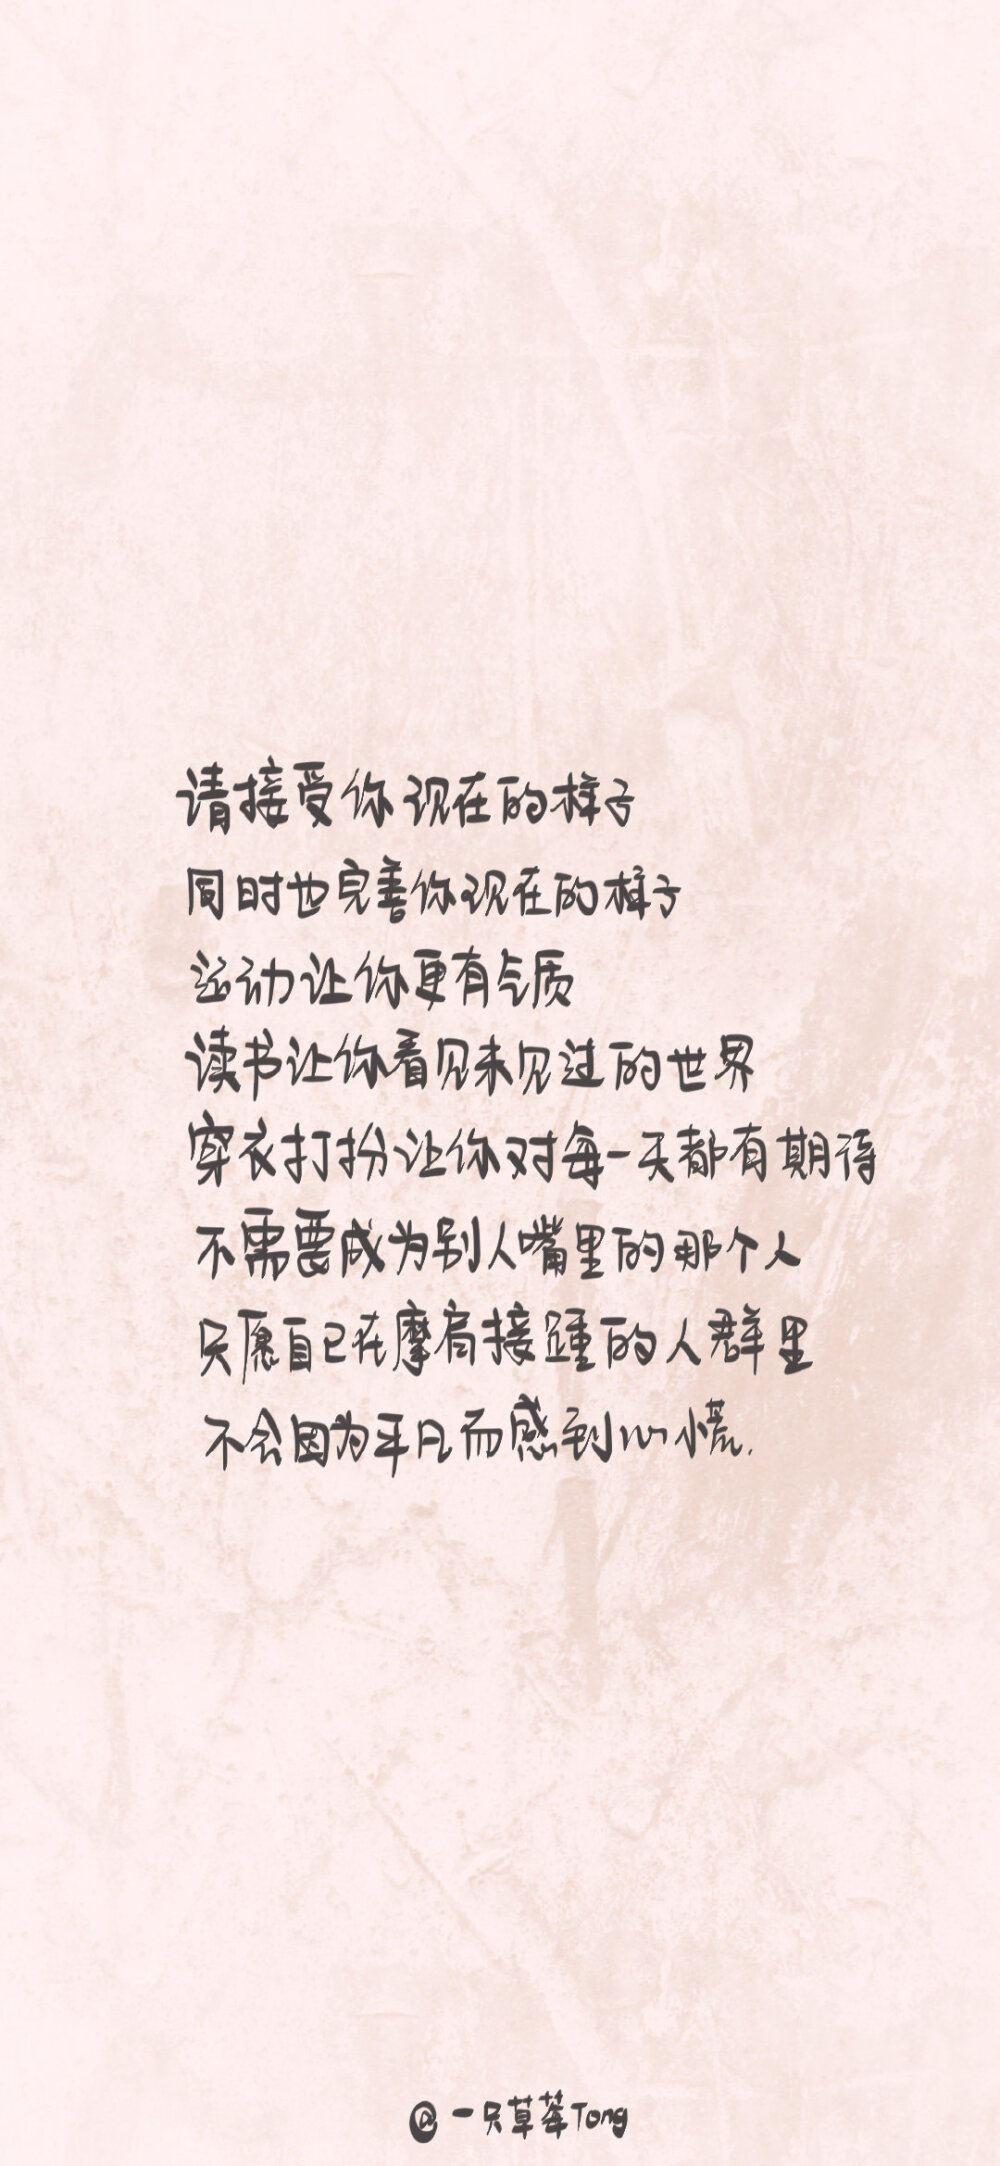 请接受你现在的样子
同时也完善你现在的样子
运动让你更有气质
读书让你看见未见过的世界
穿衣打扮让你对每一天都有期待
不需要成为别人嘴里的那个人
只愿自己在摩肩接踵的人群里
不会因为平凡而感到心慌.
@一只草莓Tong